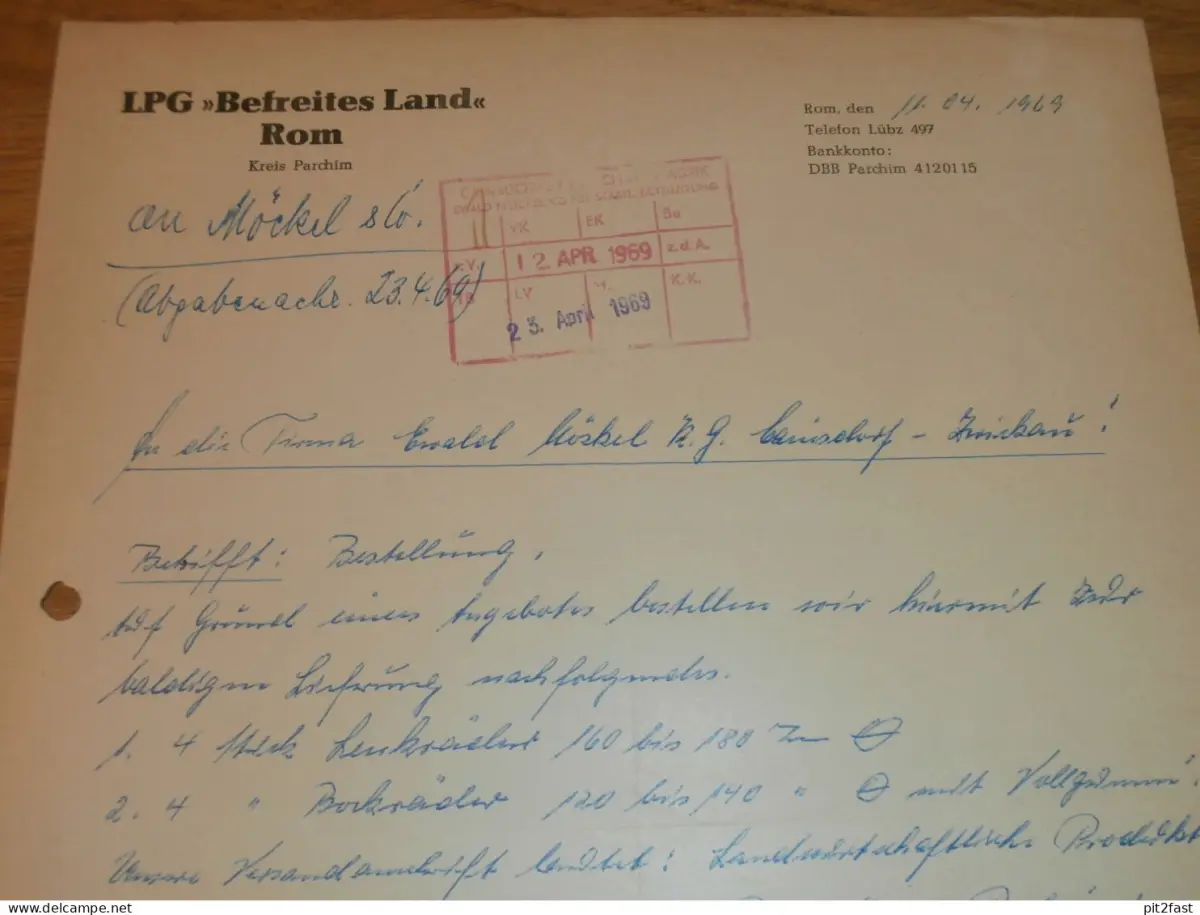 LPG »Befreites Land«
Rom
Kreis Parchim
Rom, den 11. 04. 1969
Telefon Lübz 497
Bankkonto:
DBB Parchim 4120115
an Möckel
(Abgabenachr. 23.4.69)
VK EK Bu
12. APR 1969 z.d.A.
LV K.K.
23. April 1969
An die Firma Ewald Möckel K.G. Cainsdorf - Zwickau!
Betrifft: Bestellung.
Auf Grund eines Angebotes bestellen wir hiermit zur
baldigen Lieferung nachfolgendes.
1. 4 Stück Lenkräder 160 bis 180 Ø
2. 4 " Bockräder 120 bis 140 " Ø mit Vollgummi.
Unsere Versandanschrift lautet: Landwirtschaftliche Produkt
www.delcampe.net
pit2fast